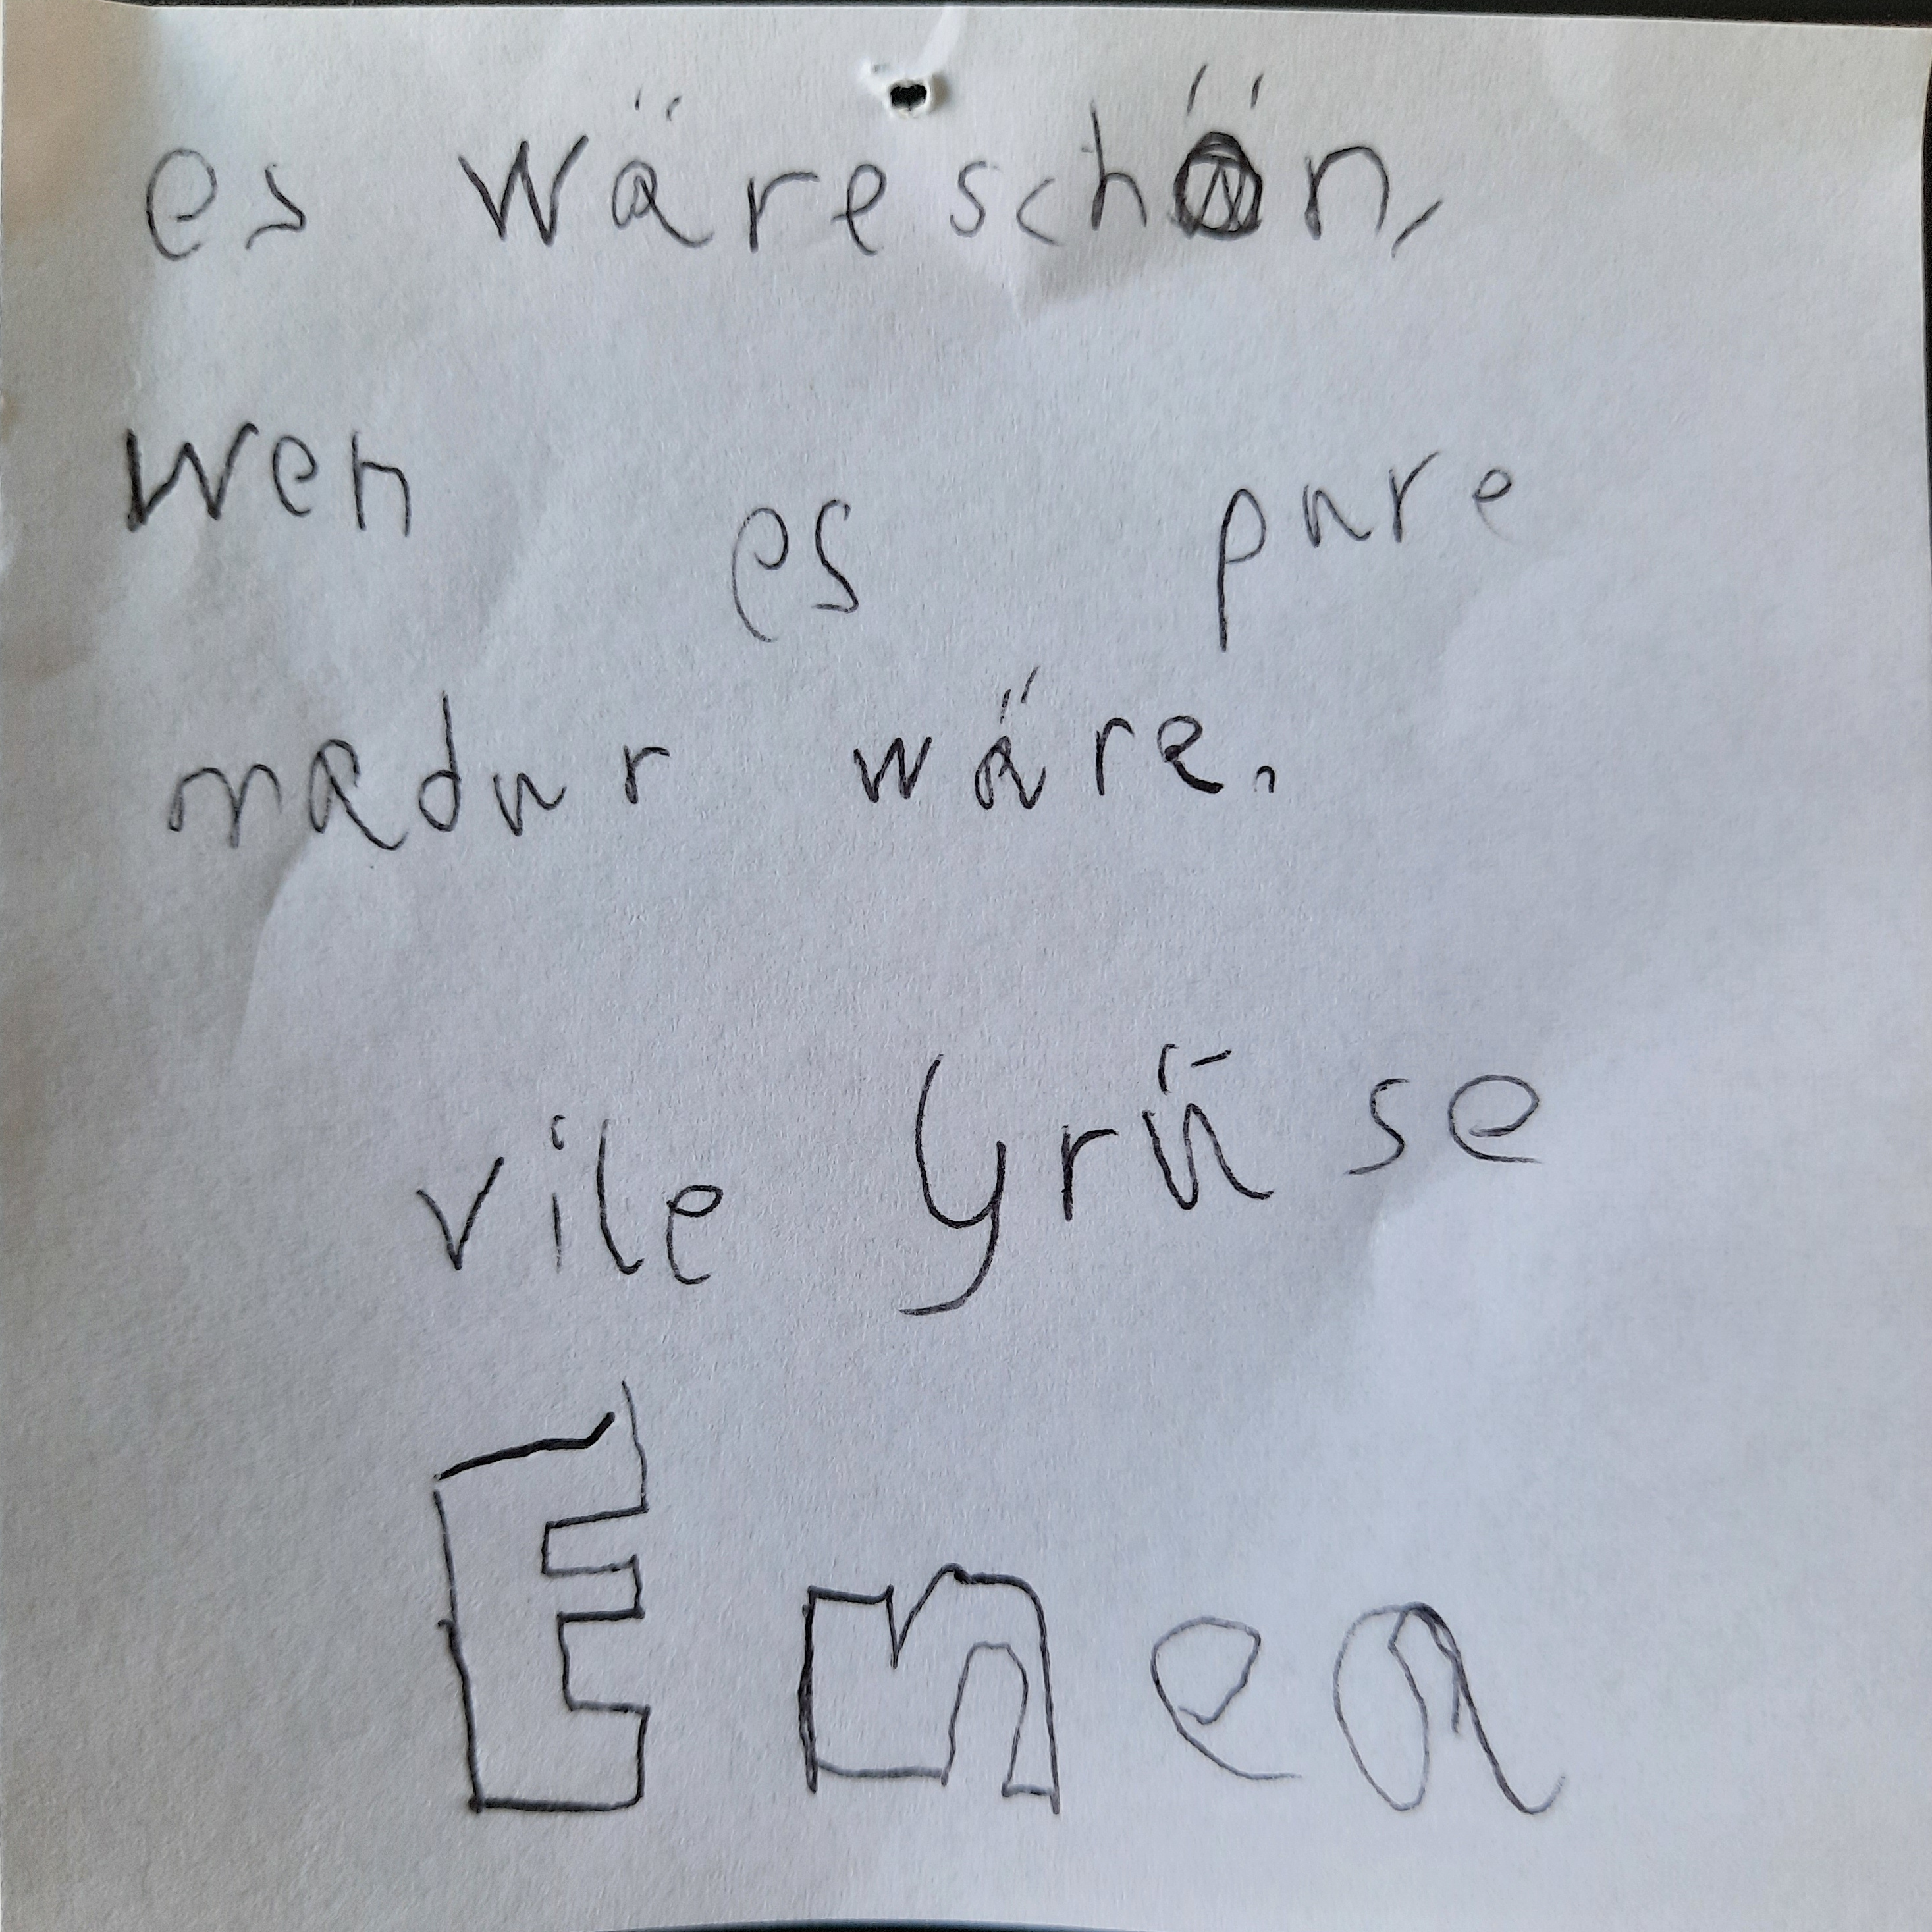 es wäre schön,
wen es pure
nadur wäre.
vile grüse
Enea